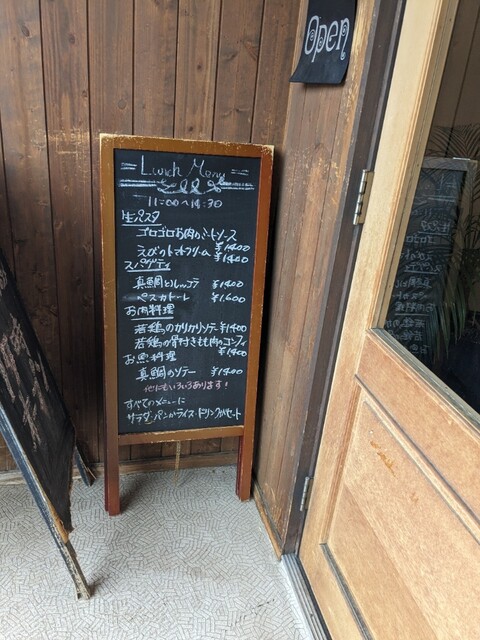 Open
Lunch Menu
11:00~14:30
生パスタ
ゴロゴロお肉のミートソース
¥1400
えびのトマトクリーム ¥1400
スパゲティ
真鯛としゃコテ ¥1400
ペスカトーレ ¥1,600
お肉料理
若鶏のカリカリソテー ¥1400
若鶏の骨付きもも肉のコンフィ
¥1400
お魚料理
真鯛のソテー ¥1400
他にもいろいろあります!
すべてのメニューに
サラダ・パンかライス・ドリンクがセット